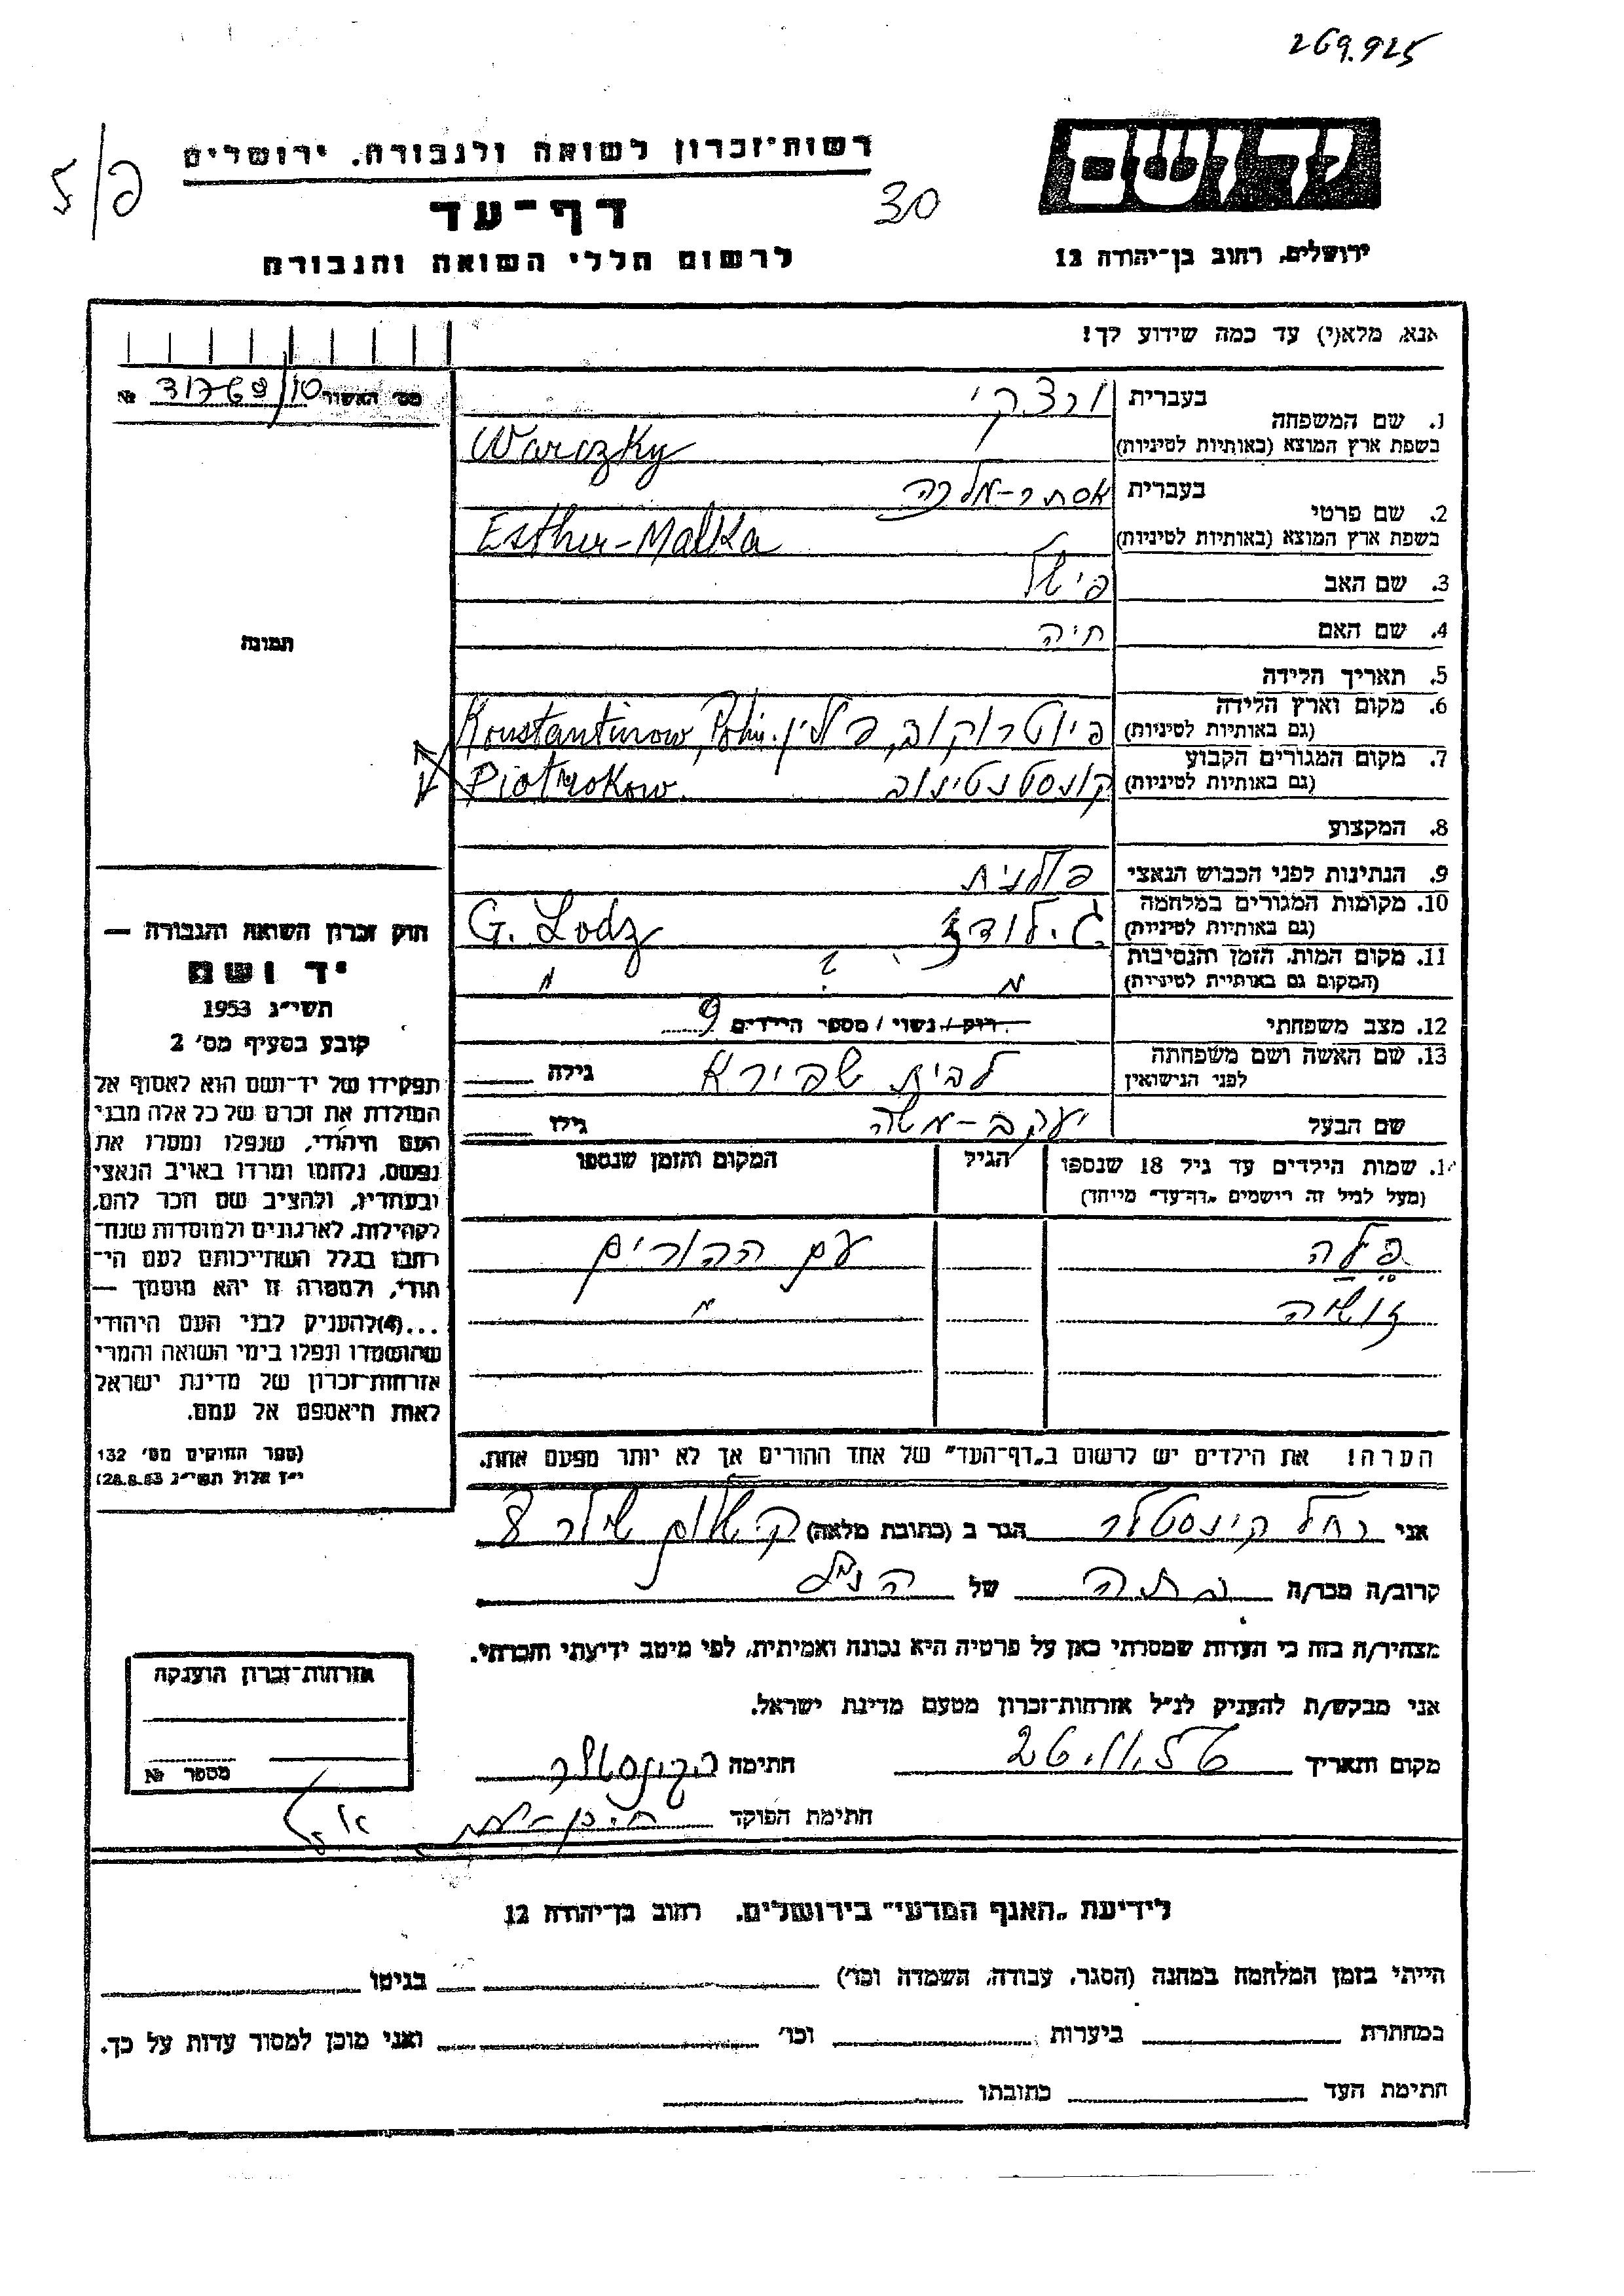 269.925
רשות־זכרון לשואה ולגבורה, ירושלים
יד ושם
דף־עד
30
לרשום חללי השואה והגבורה
ירושלים, רחוב בן־יהודה 12
אנא, מלא(י) עד כמה שידוע לך!
מס׳ האשור №
1. שם המשפחה
בעברית ורצקי
בשפת ארץ המוצא (באותיות לטיניות) Warczky
2. שם פרטי
בעברית אסתר-מלכה
בשפת ארץ המוצא (באותיות לטיניות) Esther-Malka
3. שם האב פישל
4. שם האם חיה
תמונה
5. תאריך הלידה
6. מקום וארץ הלידה (גם באותיות לטיניות) פיוטרוקוב, פולין. Konstantinow,
7. מקום המגורים הקבוע (גם באותיות לטיניות) קונסטנטינוב Piotrokow
8. המקצוע
9. הנתינות לפני הכבוש הנאצי פולנית
10. מקומות המגורים במלחמה (גם באותיות לטיניות) ג. לודז G. Lodz
11. מקום המות, הזמן והנסיבות (המקום גם באותיית לטיניות) " ? "
12. מצב משפחתי רווק / נשוי / מספר הילדים 9
13. שם האשה ושם משפחתה לפני הנישואין לבית שפירא גילה
שם הבעל יעקב-משה גילו
1. שמות הילדים עד גיל 18 שנספו (מעל לגיל זה רישמים „דף־עד” מייחד)
הגיל
המקום והזמן שנספו
פלה עם ההורים
זושיה "
הערה! את הילדים יש לרשום ב„דף־העד” של אחד ההורים אך לא יותר מפעם אחת.
חוק זכרון השואה והגבורה —
יד ושם
תשי״ג 1953
קובע בסעיף מס׳ 2
תפקידו של יד־ושם הוא לאסוף אל
המולדת את זכרם של כל אלה מבני
העם היהודי, שנפלו ומסרו את
נפשם, נלחמו ומרדו באויב הנאצי
ובעוזריו, ולהציב שם וזכר להם,
לקהילות, לארגונים ולמוסדות שנח־
רבו בגלל השתייכותם לעם הי־
הודי, ולמטרה זו יהא מוסמך —
...(4) להעניק לבני העם היהודי
שהושמדו ונפלו בימי השואה והמרי
אזרחות־זכרון של מדינת ישראל
לאות היאספם אל עמם.
(ספר החוקים מס׳ 132
י״ז אלול תשי״ג 28.8.53)
אני רחל קינסטלר הגר ב (כתובת מלאה)
קרוב/ה מכר/ה של הנ"ל
מצהיר/ה בזה כי העדות שמסרתי כאן על פרטיה היא נכונה ואמיתית, לפי מיטב ידיעתי והכרתי.
אני מבקש/ת להעניק לנ״ל אזרחות־זכרון מטעם מדינת ישראל.
מקום ותאריך חתימה
חתימת הפוקד
אזרחות־זכרון הוענקה
מספר №
לידיעת „האגף המדעי” בירושלים, רחוב בן־יהודה 12
הייתי בזמן המלחמה במחנה (הסגר, עבודה, השמדה וכו׳) בגיטו
במחתרת ביערות וכו׳ ואני מוכן למסור עדות על כך.
חתימת העד כתובתו